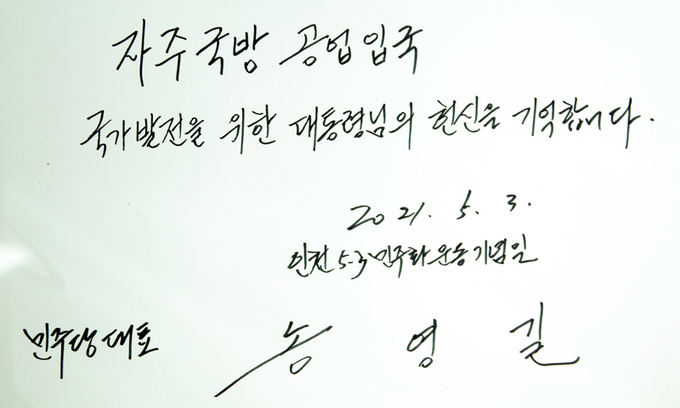 자주국방 공업입국
국가발전을 위한 대통령님의 헌신을 기억합니다.
2021. 5. 3.
인천 5.3 민주화운동기념일
민주당 대표 송영길